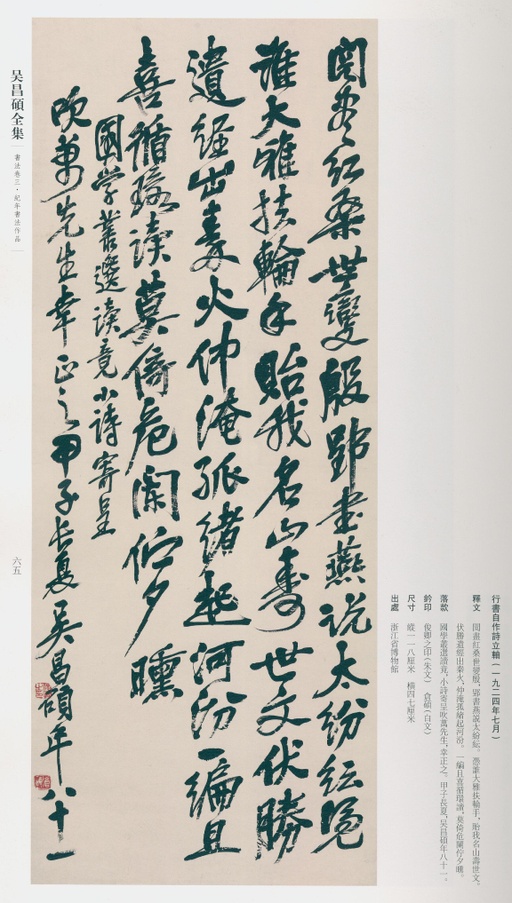 行書自作詩立軸(一九二四年七月)
釋文 閱盡紅桑世變殷,郢書燕說太紛紜。憑誰大雅扶輪手,貽我名山壽世文。
伏勝遺經出秦火,仲淹孤緒起河汾。一編且喜循環讀,莫倚危闌佇夕曛。
落款 國學叢選讀竟,小詩寄呈吹萬先生,幸正之。甲子長夏,吳昌碩年八十一。
鈐印 俊卿之印(朱文) 倉碩(白文)
尺寸 縱一一八厘米 橫四七厘米
出處 浙江省博物館
閱盡紅桑世變殷郢書燕說太紛紜憑
誰大雅扶輪手貽我名山壽世文伏勝
遺經出秦火仲淹孤緒起河汾一編且
喜循環讀莫倚危闌佇夕曛
國學叢選讀竟小詩寄呈
吹萬先生幸正之甲子長夏吳昌碩年八十一
吴昌碩全集
書法卷三·紀年書法作品
六五